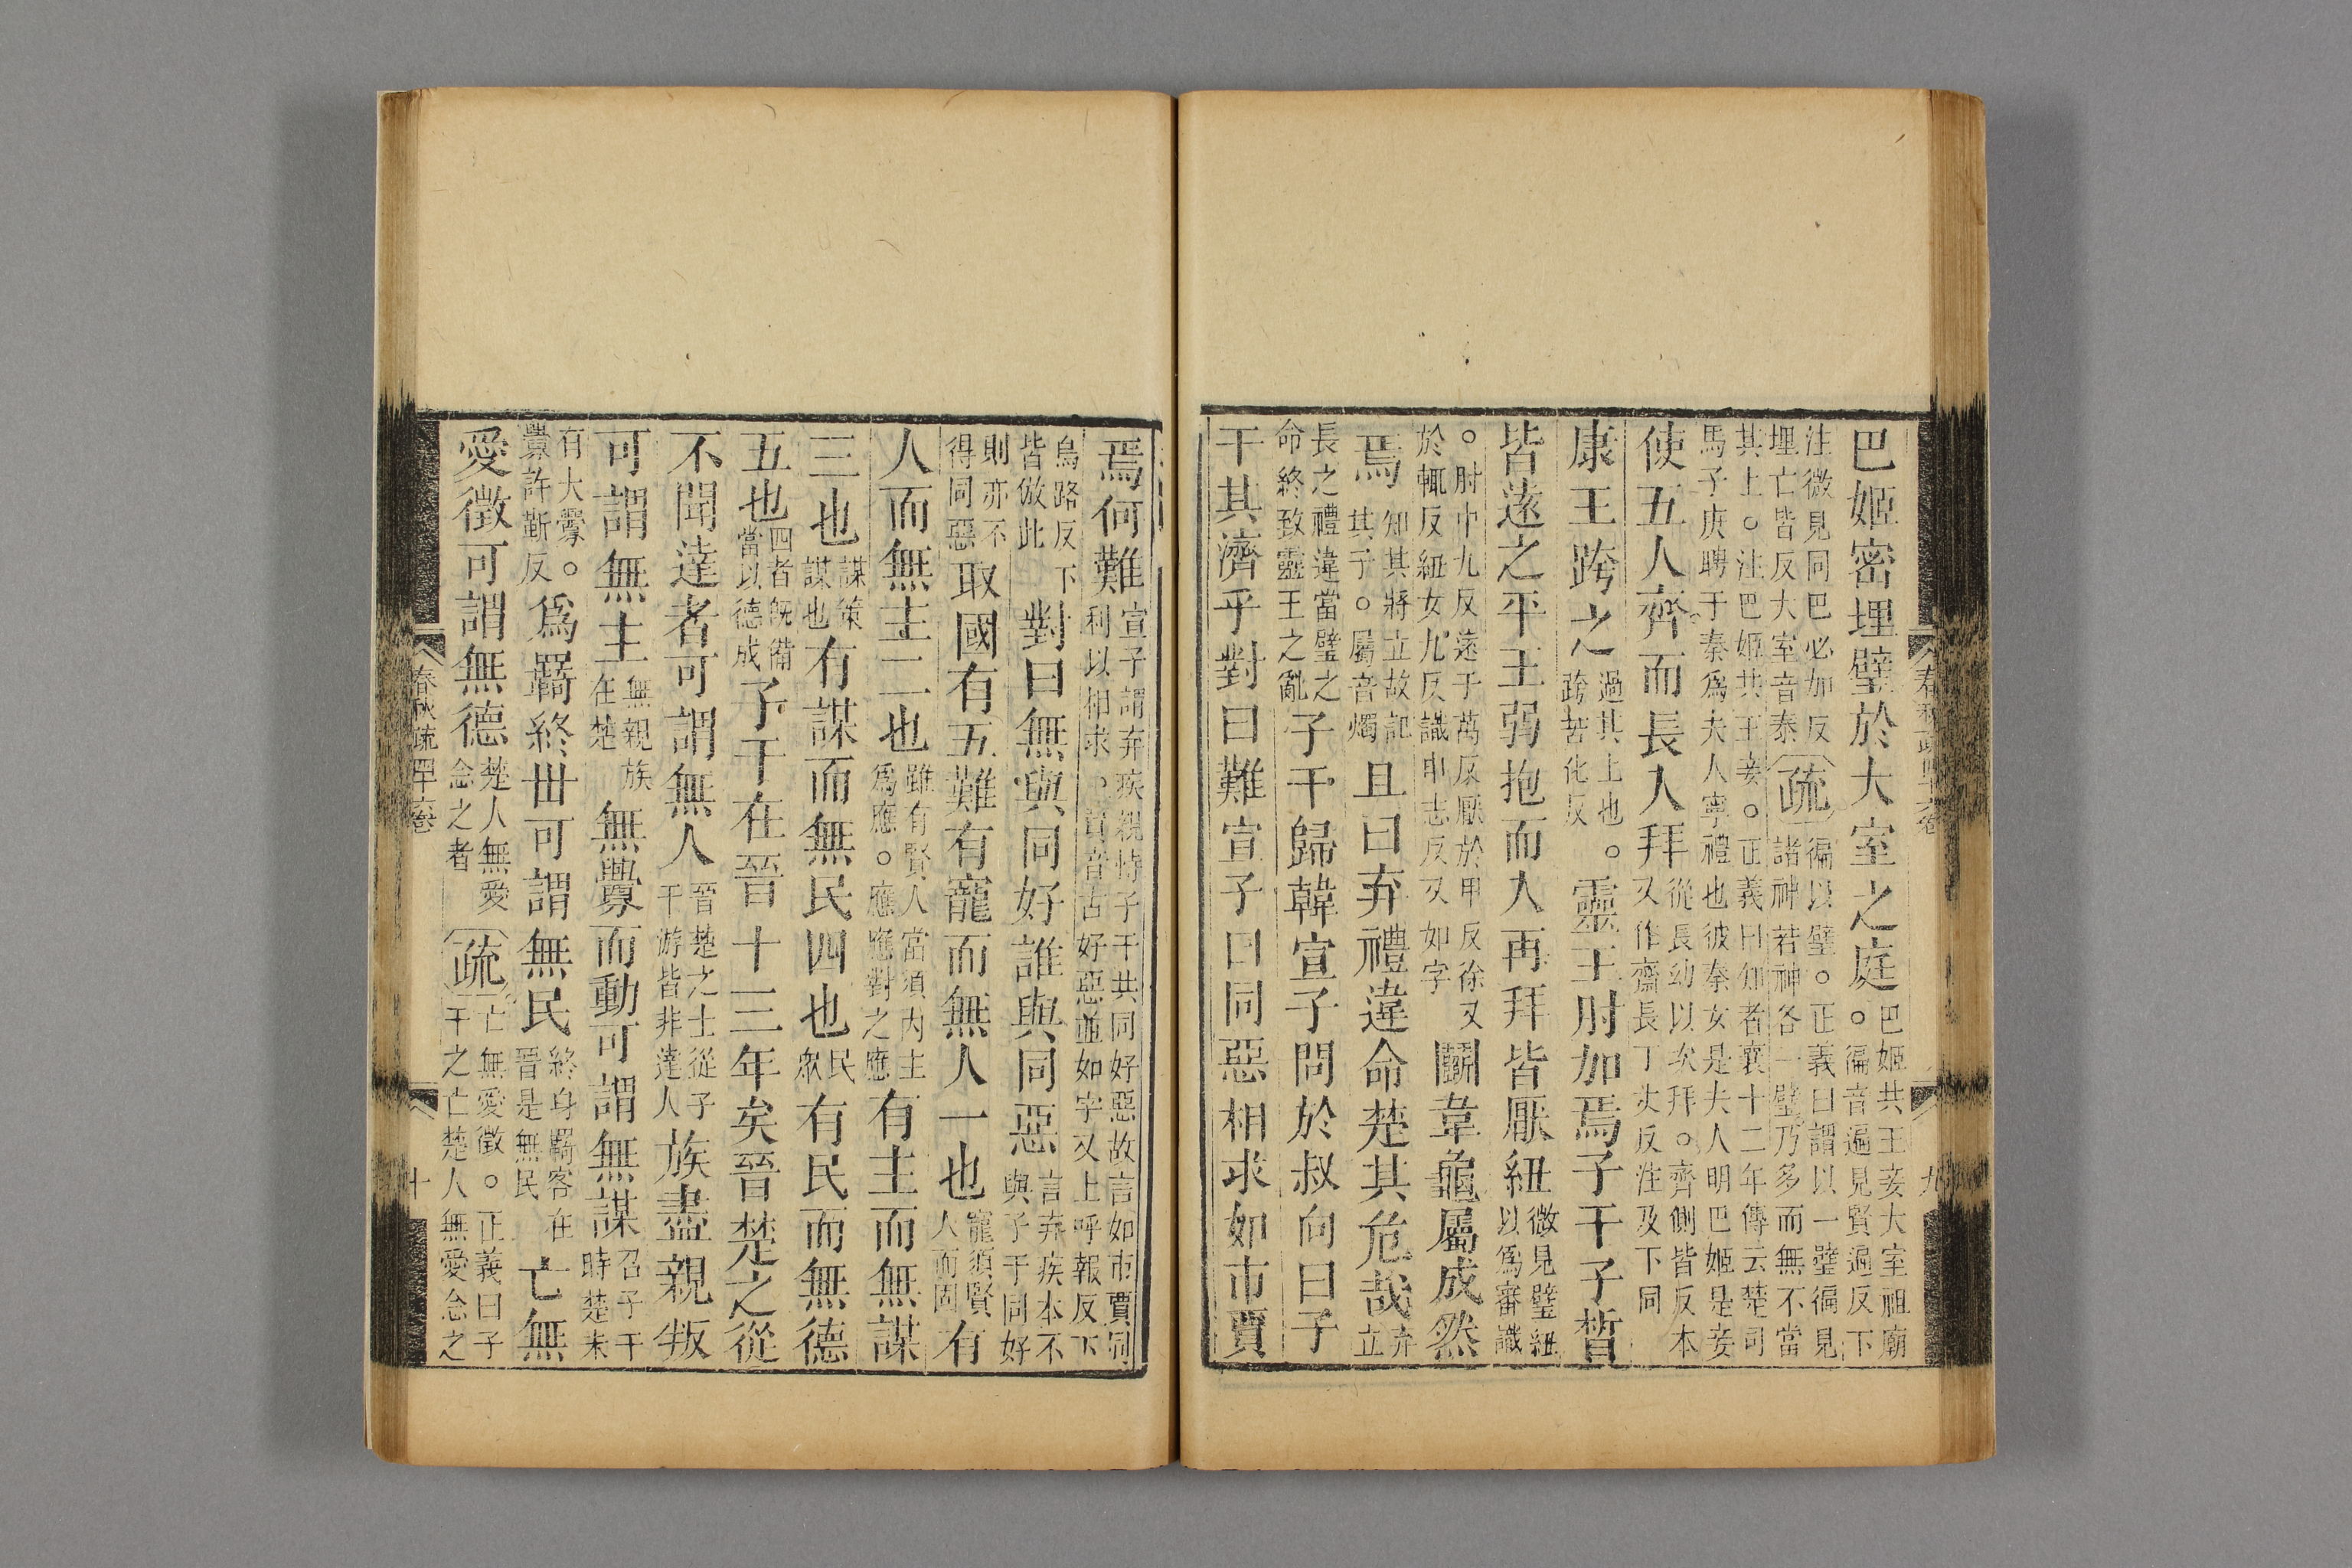 巴姬密埋璧於大室之庭巴姬共王妾大室祖廟。徧音遍見賢遍反下
注微見同巴必加反埋亡皆反大室音泰疏徧以璧。正義曰謂以一璧徧見諸神若神各一璧乃多而無不當
其上。注巴姬共王妾。正義曰知者襄十二年傳云楚司馬子庚聘于秦爲夫人寧禮也彼秦女是夫人明巴姬是妾
使五人齊而長入拜從長幼以次拜。齊側皆反本又作齋長丁丈反注及下同
康王跨之過其上也。跨苦化反靈王肘加焉子干子晳
皆遠之平王弱抱而入再拜皆厭紐微見璧紐以爲審識
。肘中九反遠于萬反厭於甲反徐又於輒反紐女九反識申志反又如字鬭韋龜屬成然
焉知其將立故記其子。屬音燭且曰弃禮違命楚其危哉弃立
長之禮違當璧之命終致靈王之亂子干歸韓宣子問於叔向曰子
干其濟乎對曰難宣子曰同惡相求如市賈
春秋疏卌六卷 九
焉何難宣子謂弃疾親恃子干共同好惡故言如市賈同利以相求。賈音古好惡並如字又上呼報反下
烏路反下皆倣此對曰無與同好誰與同惡言弃疾本不與子干同好
則亦不得同惡取國有五難有寵而無人一也寵須賢人而固有
人而無主二也雖有賢人當須内主爲應。應應對之應有主而無謀
三也謀策謀也有謀而無民四也民衆有民而無德
五也四者既備當以德成子干在晉十三年矣晉楚之從
不聞達者可謂無人晉楚之士從子干游皆非達人族盡親叛
可謂無主無親族在楚無釁而動可謂無謀召子干時楚未
有大釁。釁許靳反爲羇終丗可謂無民終身羇客在晉是無民亡無
愛徵可謂無德楚人無愛念之者疏亡無愛徵。正義曰子干之亡楚人無愛念之
春秋疏卌六卷 十